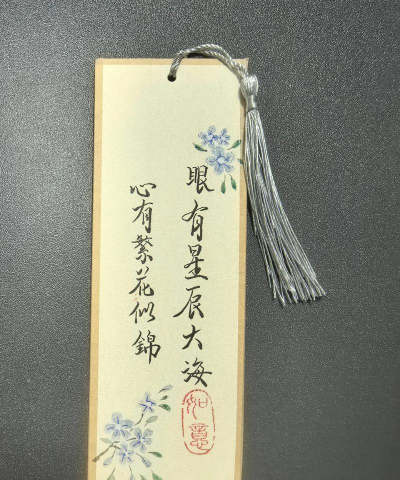 眼有星辰大海
心有繁花似錦
如意